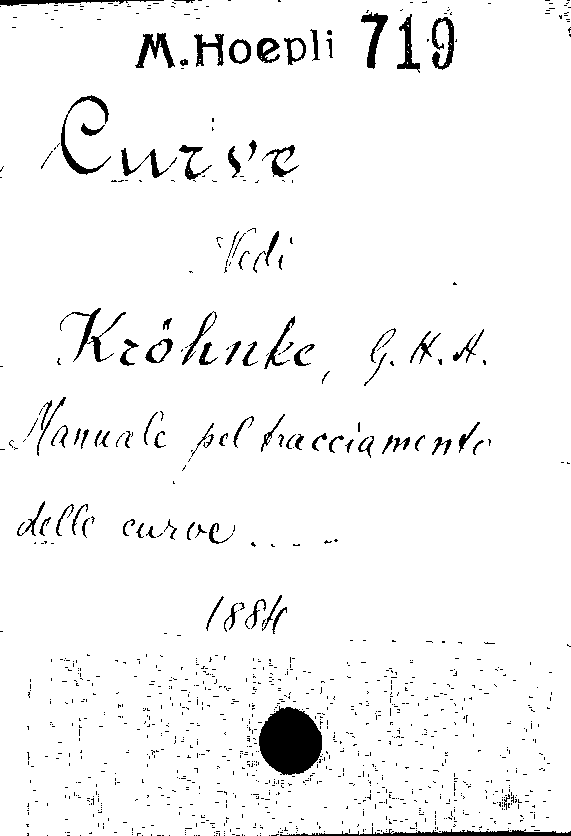 M. Hoepli 719
Curve
Vedi
Kröhnke, G. H. A.
Manuale pel tracciamento
delle curve . . . .
1884